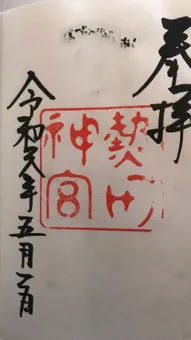 奉拝
熱田
神宮
令和元年五月